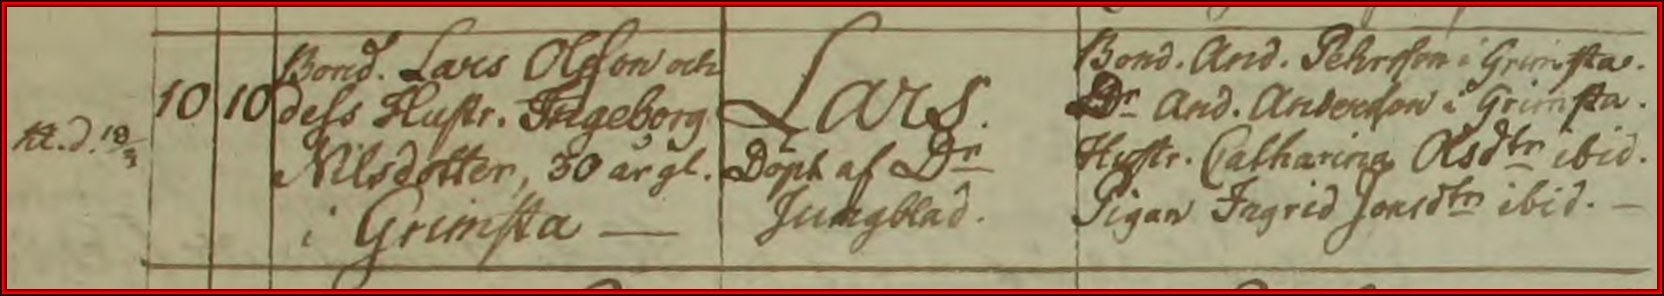 10 10 Bond. Lars Olsson och
dess Hustr. Ingeborg
Nilsdotter, 30 år gl.
i Grimsta —
Lars.
Döpt af Dn
Jungblad.
Bond. And. Pehrsson i Grimsta.
Dn And. Andersson i Grimsta.
Hustr. Catharina Olsdtr ibid.
Pigan Ingrid Jonsdtr ibid. —